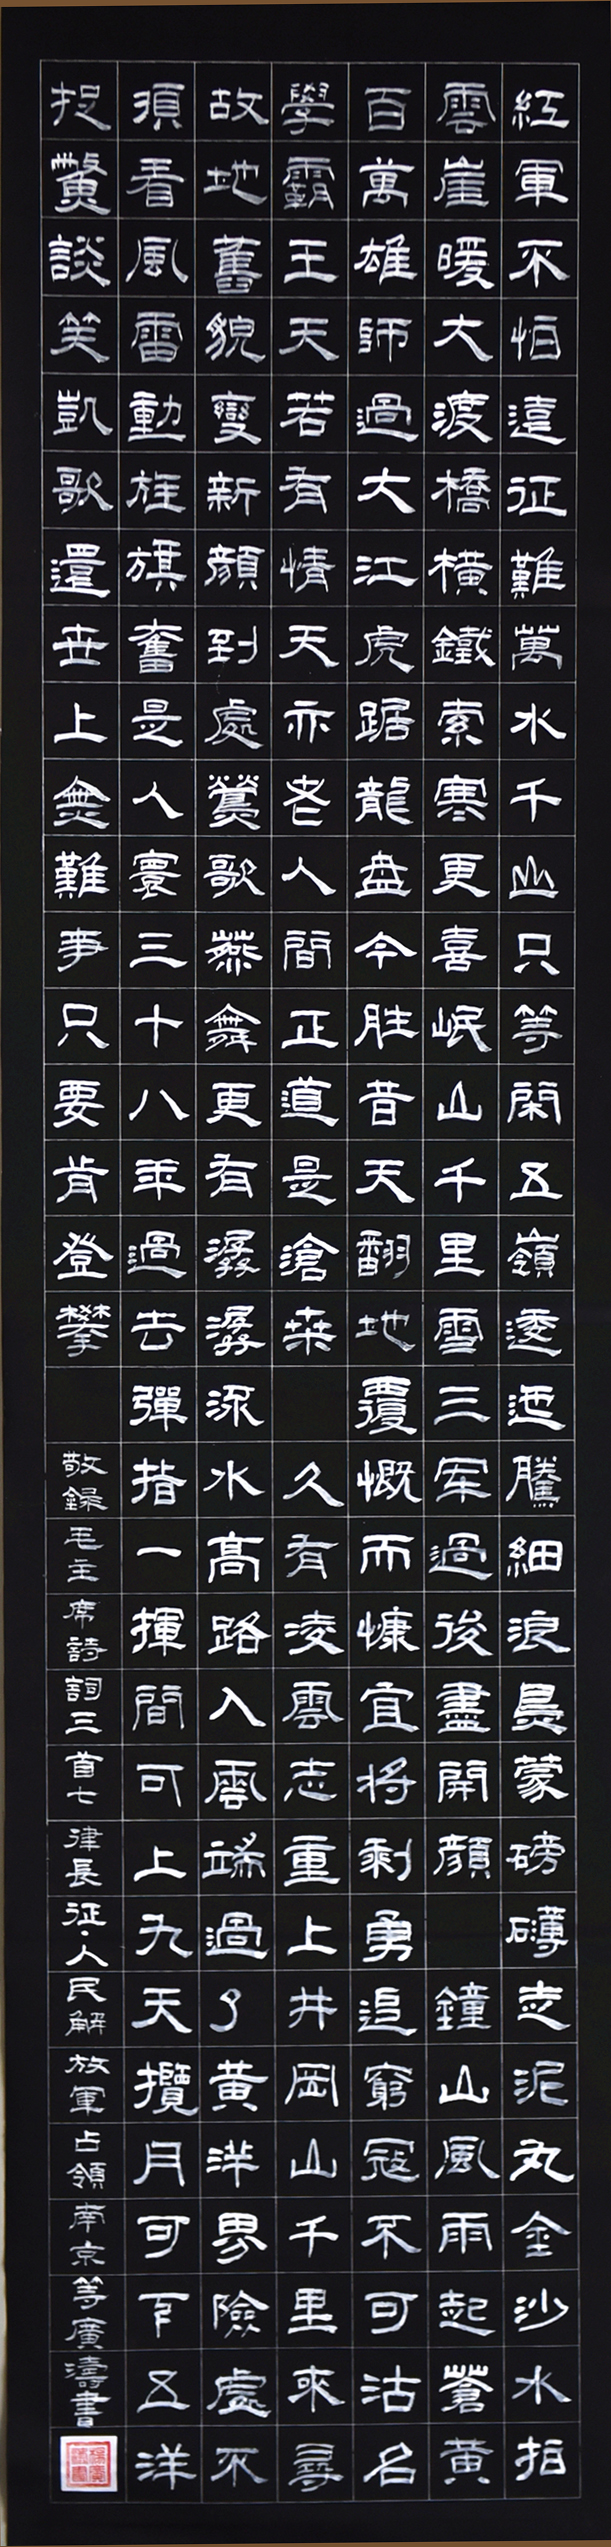 紅軍不怕遠征難萬水千山只等閑五嶺逶迤騰細浪烏蒙磅礴走泥丸金沙水拍
雲崖暖大渡橋橫鐵索寒更喜岷山千里雪三军過後盡開顏 鐘山風雨起蒼黄
百萬雄師過大江虎踞龍盘今胜昔天翻地覆慨而慷宜将剩勇追窮寇不可沽名
學霸王天若有情天亦老人間正道是滄桑 久有凌雲志重上井岡山千里來尋
故地舊貌變新顏到處鶯歌燕舞更有潺潺流水高路入雲端過了黄洋界險處不
須看風雷動旌旗奮是人寰三十八年過去彈指一揮間可上九天攬月可下五洋
捉鱉談笑凱歌還世上無難事只要肯登攀 敬録毛主席詩詞三首七律長征·人民解放軍占領南京等廣濤書